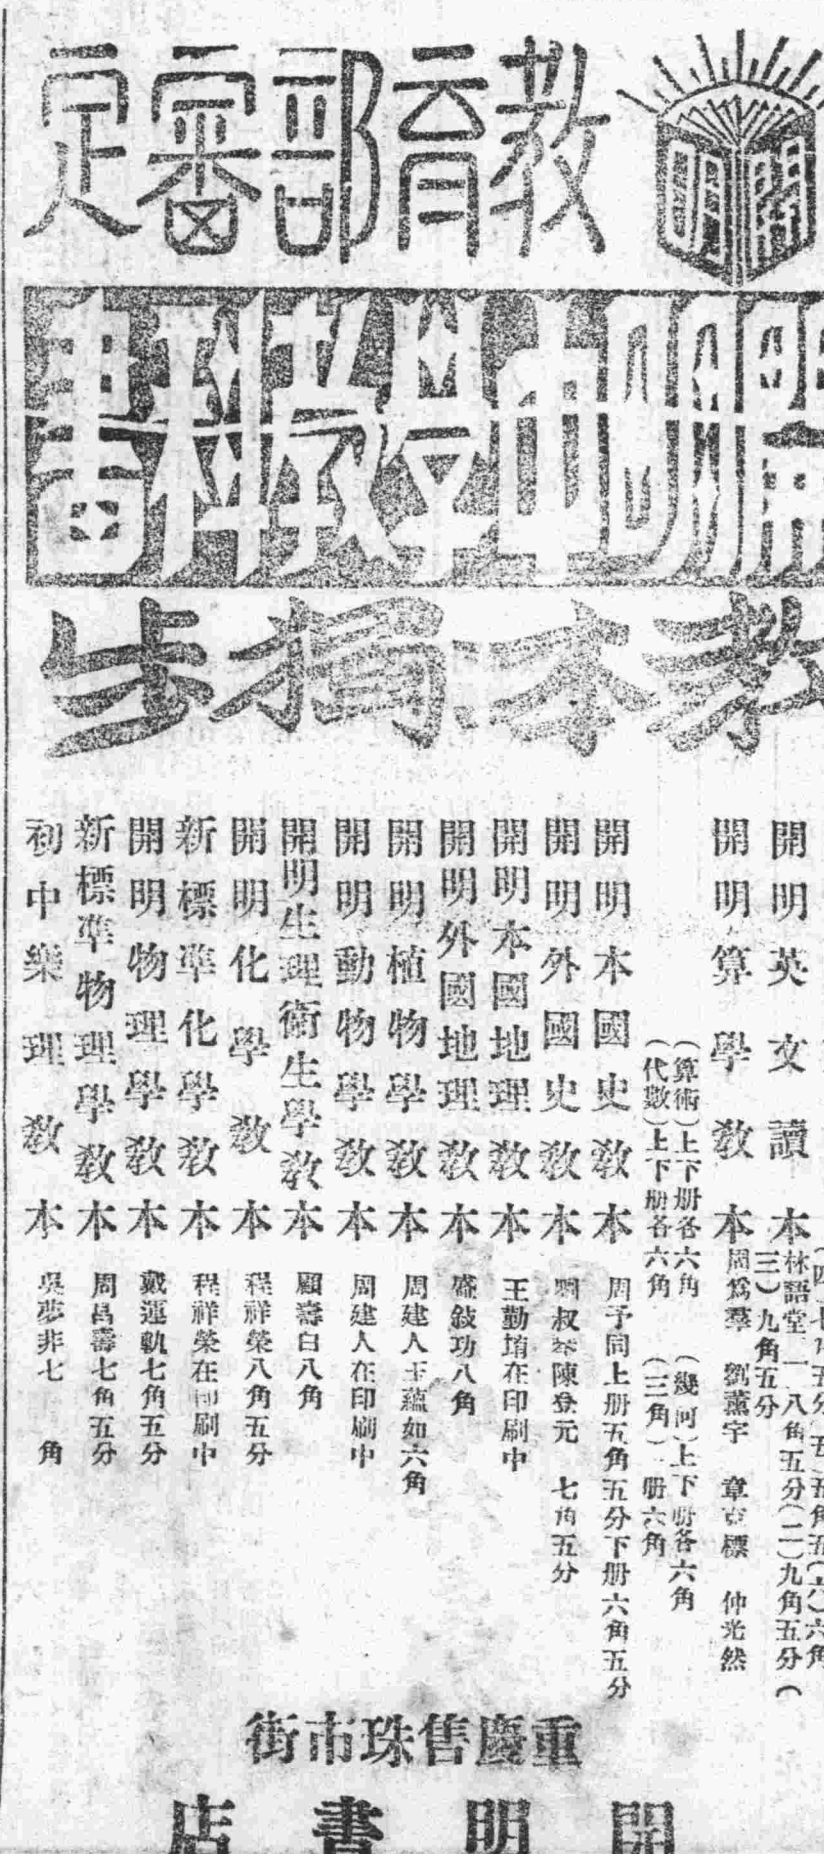 教育部審定
開明中學教科書
教本獨步
開明英文讀本
林語堂 一 八角五分(二)九角五分(
三)九角五分
開明算學教本
周為羣 劉薰宇 章克標 仲光然
(算術)上下册各六角 (幾何)上下册各六角
(代數)上下册各六角 (三角)一册六角
開明本國史教本 周予同上册五角五分下册六角五分
開明外國史教本 叔 陳登元 七角五分
開明本國地理教本 王勤堉在印刷中
開明外國地理教本 盛敍功八角
開明植物學教本 周建人王蘊如六角
開明動物學教本 周建人在印刷中
開明生理衛生學教本 顧壽白八角
開明化學教本 程祥榮八角五分
新標準化學教本 程祥榮在印刷中
開明物理學教本 戴運軌七角五分
新標準物理學教本 周昌壽七角五分
初中樂理教本 吳夢非七角
重慶售珠市街
開明書店